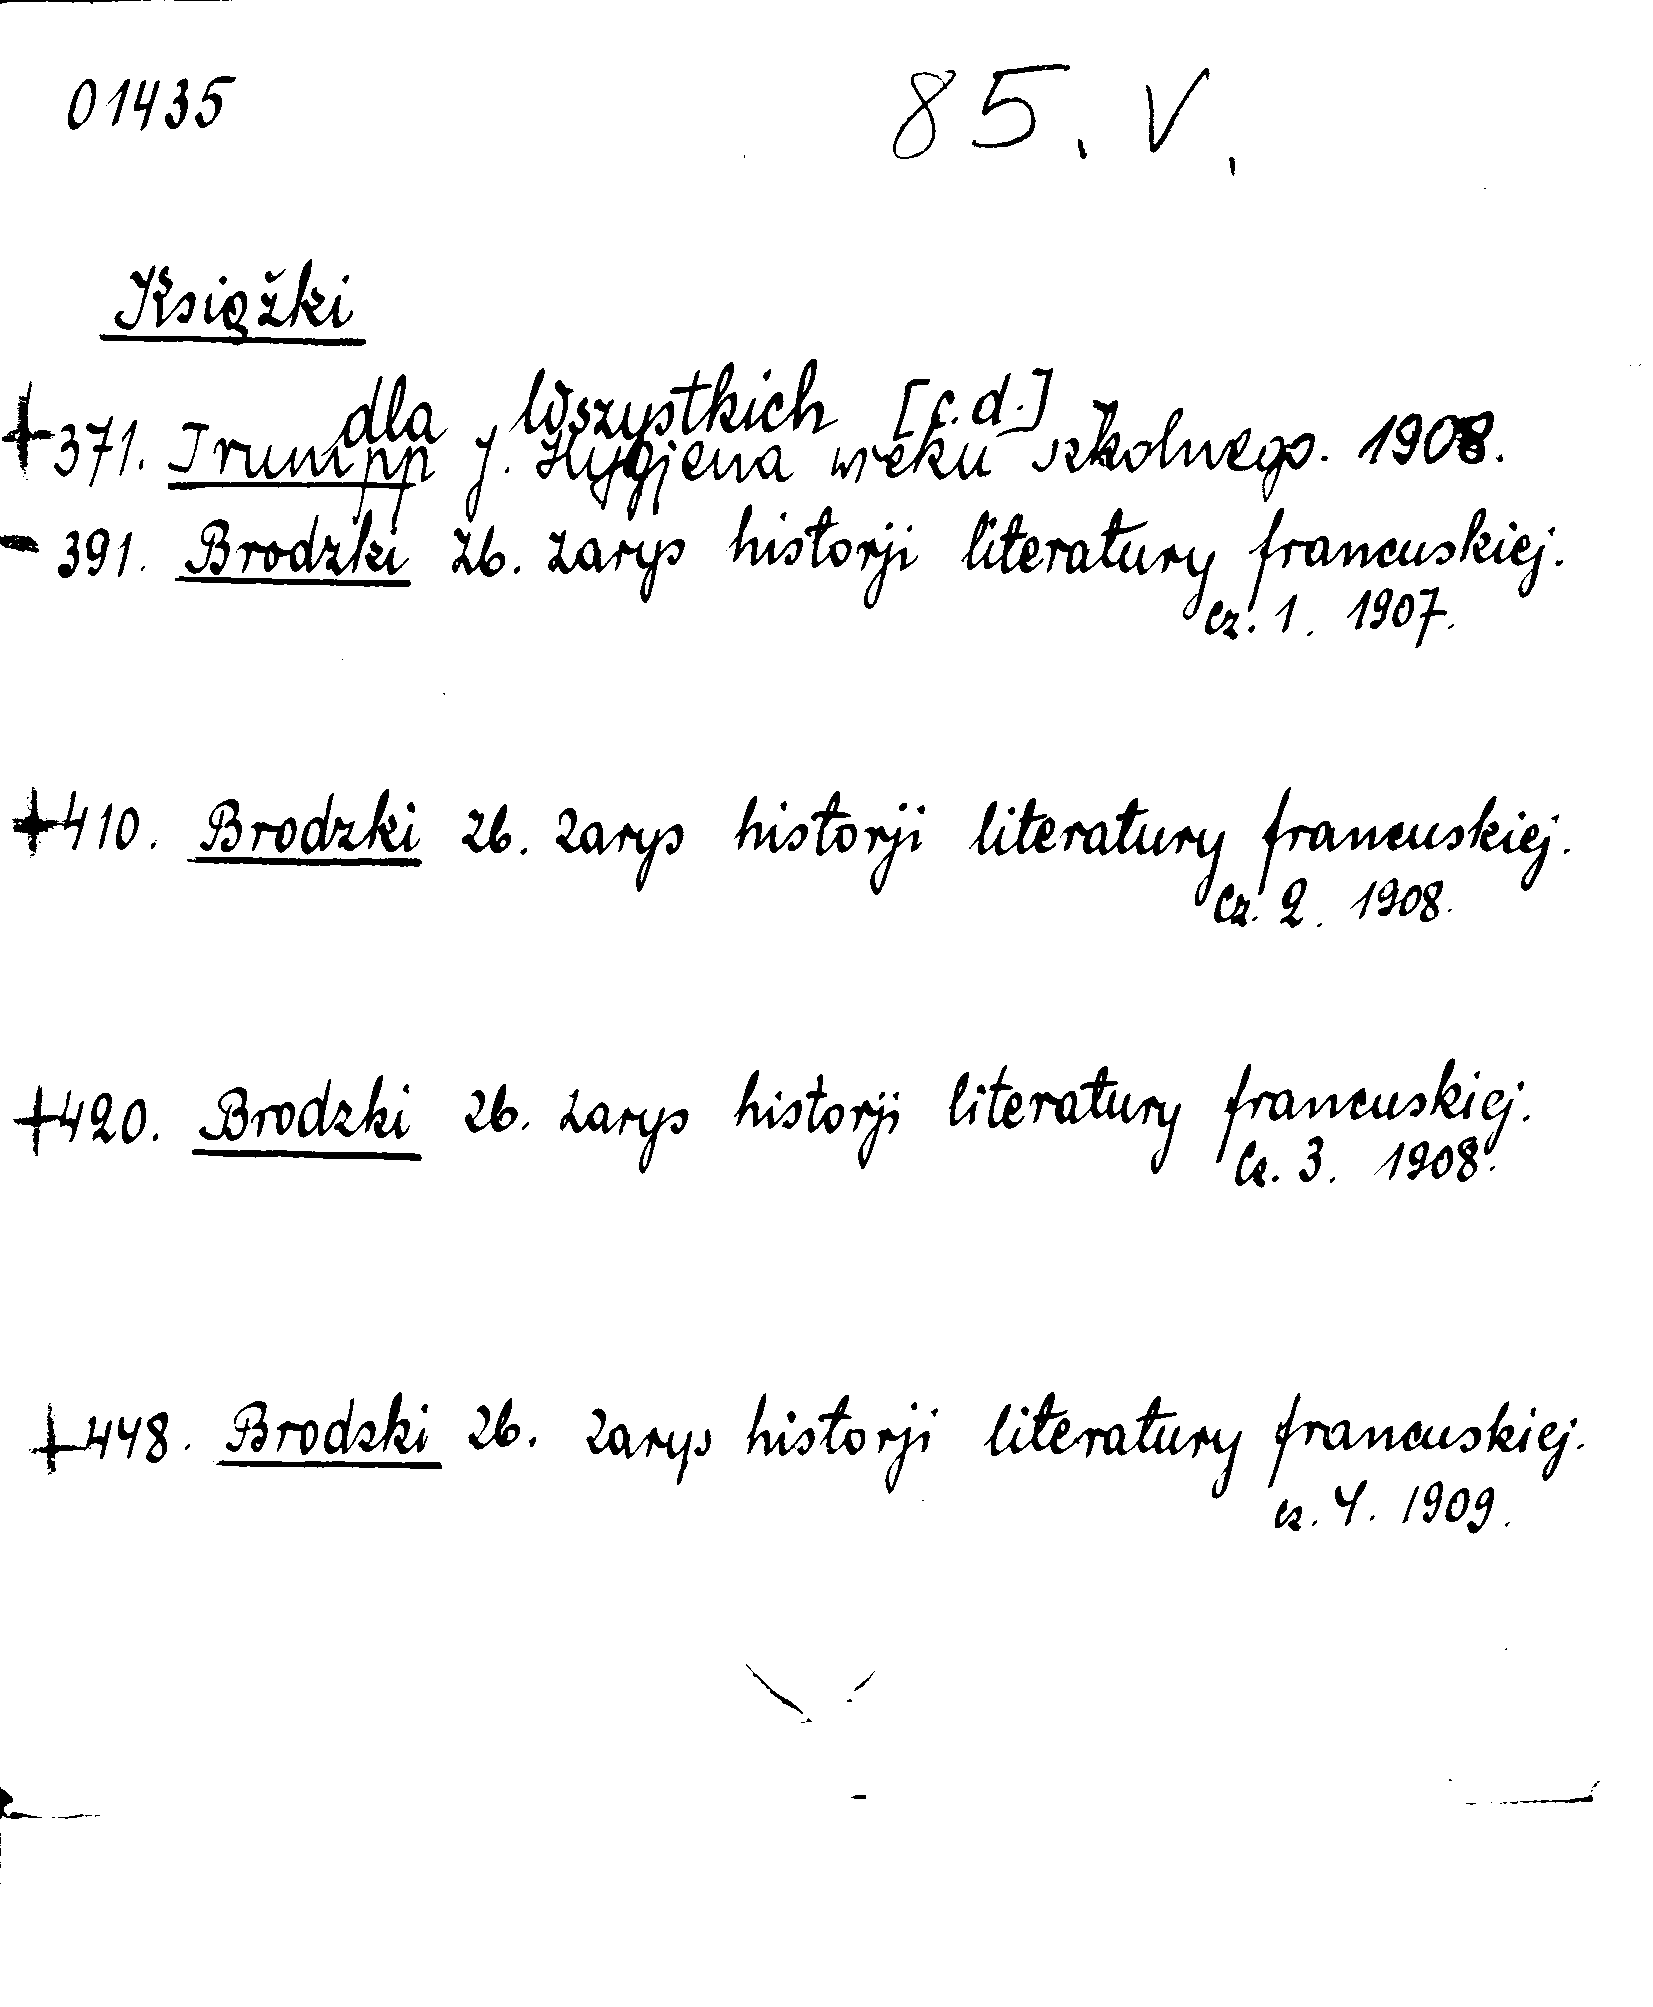 01435
85. V.
Książki
dla Wszystkich [c.d.]
+ 371. Trumpp J. Hygjena wieku szkolnego. 1908.
- 391. Brodzki Zb. Zarys historji literatury francuskiej.
cz. 1. 1907.
+ 410. Brodzki Zb. Zarys historji literatury francuskiej.
Cz. 2. 1908.
+ 420. Brodzki Zb. Zarys historji literatury francuskiej.
Cz. 3. 1908.
+ 448. Brodzki Zb. Zarys historji literatury francuskiej.
cz. 4. 1909.